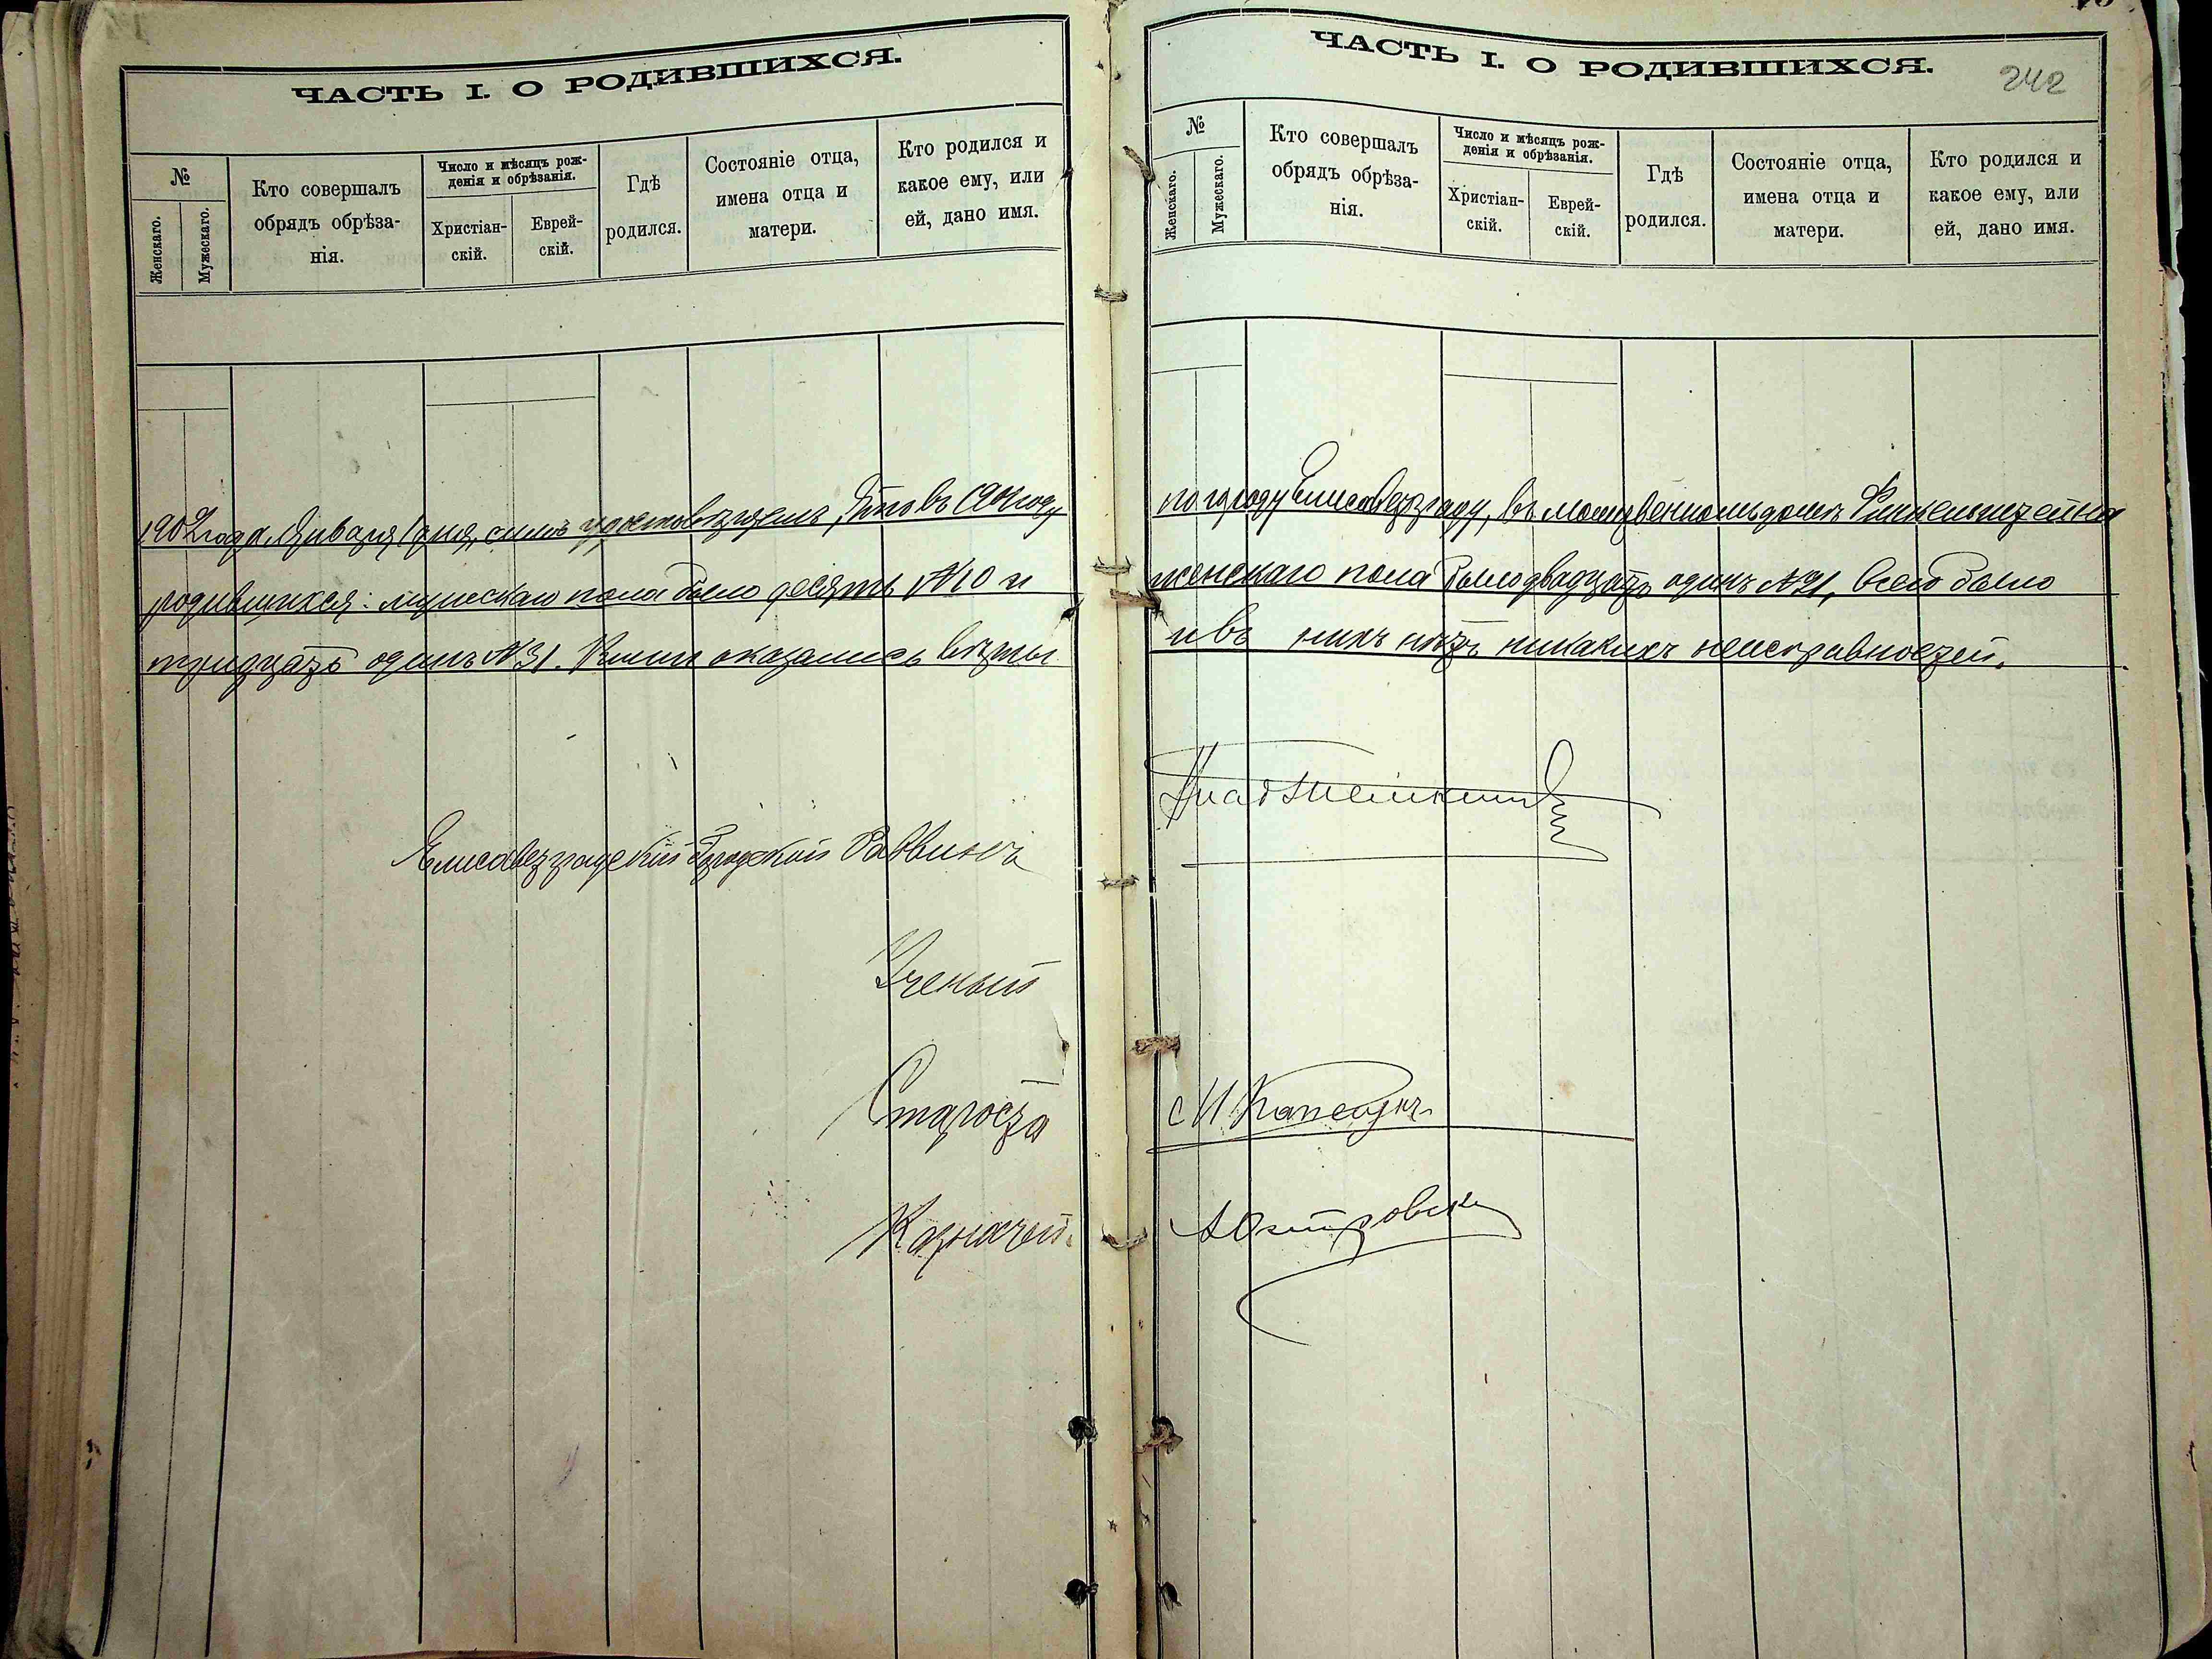 ЧАСТЬ I. О РОДИВШИХСЯ.
№
Женскаго.
Мужескаго.
Кто совершалъ
обрядъ обрѣза-
нія.
Число и мѣсяцъ рож-
денія и обрѣзанія.
Христіан-
скій.
Еврей-
скій.
Гдѣ
родился.
Состояніе отца,
имена отца и
матери.
Кто родился и
какое ему, или
ей, дано имя.
1902 года Января 1 дня, симъ удостовѣряемъ, что въ 1901 году
родившихся: мужескаго пола было десять №10 и
тридцать одинъ №31. Книги оказались вѣрны
Елисаветградскій Городской Раввинъ
Ученый
Староста
Казначей.
ЧАСТЬ I. О РОДИВШИХСЯ.
242
№
Женскаго.
Мужескаго.
Кто совершалъ
обрядъ обрѣза-
нія.
Число и мѣсяцъ рож-
денія и обрѣзанія.
Христіан-
скій.
Еврей-
скій.
Гдѣ
родился.
Состояніе отца,
имена отца и
матери.
Кто родился и
какое ему, или
ей, дано имя.
по городу Елисаветграду, въ молитвенномъ домѣ Финкельштейна
женскаго пола было двадцать одинъ №21, всего было
и въ нихъ нѣтъ никакихъ неисправностей.